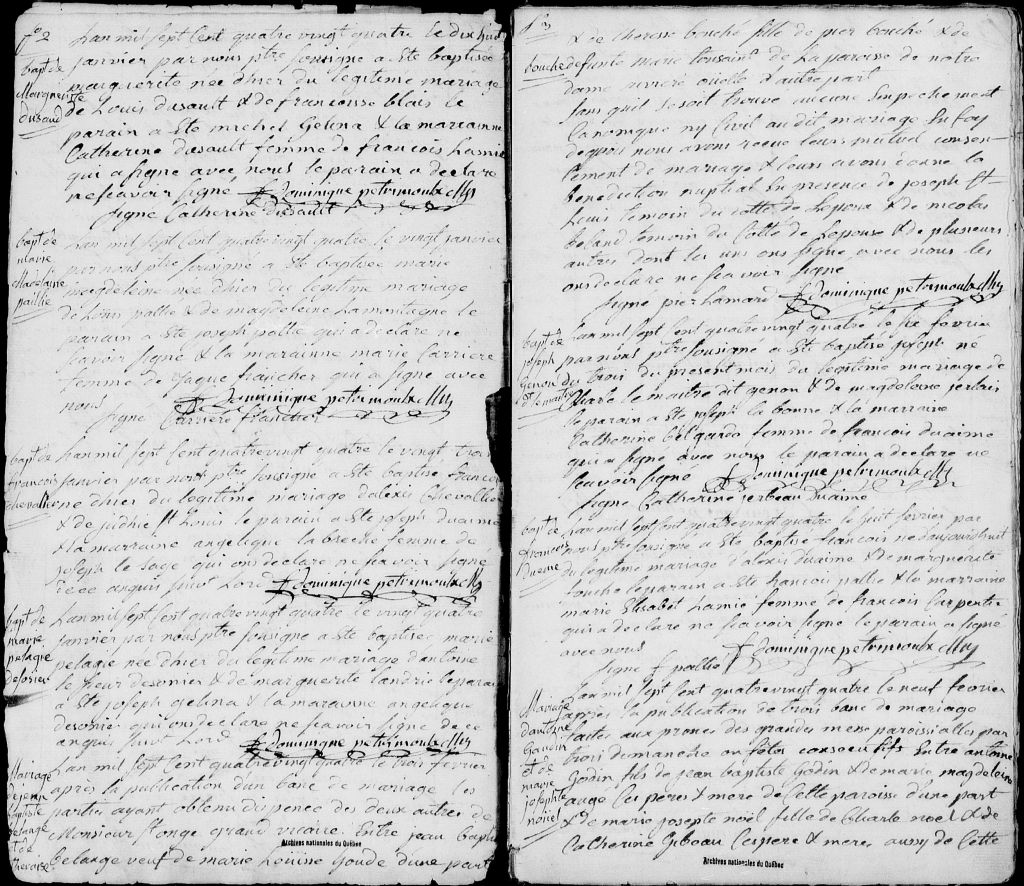 fo 2
bapt de
Marguerite
dusaud
Lan mil sept Cent quatre vingt quatre le dix huit
janvier par nous ptre sousigne a Ete baptisée
marguerite née dhier du legitime mariage
de Louis dusault & de francoisse blais le
parain a Ete michel Gelina & la marainne
Catherine dusault femme de francois Lamie
qui a signe avec nous le parain a declare
ne scavoir signe f Dominique petrimoulx Miss
signe Catherine dusault
bapt de
marie
Madelaine
paillie
Lan mil sept Cent quatre vingt quatre le vingt janvier
par nous ptre sousigné a Ete baptisee marie
magdeleine née dhier du legitime mariage
de Louis pallie & de magdeleine Lamontagne le
parain a Ete joseph pallie qui a declare ne
scavoir signé & la marainne marie Carriere
femme de jaque francher qui a signe avec
nous f Dominique petrimoulx Miss
signe Carriere francher
bapt de
francois
chevallie
Lan mil sept Cent quatre vingt quatre le vingt trois
janvier par nous ptre sousigné a Ete baptise francois
né dhier du legitime mariage dalexis chevallie
& de judhie St Louis le parain a Ete joseph duaime
& la marraine angelique la breche femme de
joseph le sage qui ons declare ne scavoir signé
de ce anquis suiv Lord f Dominique petrimoulx Miss
bapt de
marie
pelagie
desorier
Lan mil sept Cent quatre vingt quatre le vingt quatre
janvier par nous ptre sousigne a Ete baptisée marie
pelagie née dhier du legitime mariage dantoine
le sieur desorier & de marguerite landrie le parain
a Ete joseph gelina & la marainne angelique
desorier qui ons declare ne scavoir signe de ce
anquis suiv Lord f Dominique petrimoulx Miss
Mariage
de jean
baptiste
belange
& de
therese
Lan mil sept Cent quatre vingt quatre le trois fevrier
après la publication dun banc de mariage les
parties ayant obtenu dispence des deux autres de
Monsieur St onge grand vicaire. Entre jean baptiste
belange veuf de marie Louise Goude dune part
Archives nationales du Québec
fo 3
bouche
& de theresse bouché fille de pier bouché & de
defunte marie tousaint de la paroisse de notre
dame
sans quil se soit trouve aucune Enpechement
Canonique ny Civil audit mariage En foy
dequoy nous avons recue leurs mutuel consen-
tement de mariage & leurs avons donne la
benediction nuptial En presence de joseph St
Louis temoin du cotte de Lepoux & de nicolas
beland temoin du Cotté de Lepouse & de plusieurs
autres dont les uns ons signe avec nous les
ons declare ne scavoir signe
signe pier Lamard f Dominique petrimoulx Miss
bapt de
joseph
Genon
d le maitre
Lan mil sept Cent quatre vingt quatre le six fevrier
par nous ptre sousigné a Ete baptisé joseph né
du trois du present mois du legitime mariage de
Charle le maitre dit genon & de magdeleine
le parain a Ete joseph la bonne & la marraine
Catherine femme de francois duaime
qui a signe avec nous le parain a declare ne
scavoir signé f Dominique petrimoulx Miss
signe Catherine duaime
bapt de
francois
Lan mil sept Cent quatre vingt quatre le huit fevrier par
nous ptre sousigné a Ete baptise francois né daujourdhuit
du legitime mariage dalexis duaime & de marguerite
fouche le parain a Ete francois pallie & la marraine
marie Elisabet Lamie femme de francois Carpentie
qui a declare ne scavoir signe le parain a signe
avec nous f Dominique petrimoulx Miss
signe f pallie
Mariage
dantoine
Gaudin
et de
marie
josephte
noel
Lan mil sept Cent quatre vingt quatre le neuf fevrier
après la publication de trois banc de mariage
faites aux prones des grandes mese paroissialles par
trois dimanche ou fetes consecutifs Entre antoine
Godin fils de jean baptiste Godin & de marie magdeleine
ange Ces peres & mere de Cette paroisse dune part
& de marie josephe noel fille de Charle noel & de
Catherine Gibeau Ces pere & mere aussy de Cette
Archives nationales du Québec